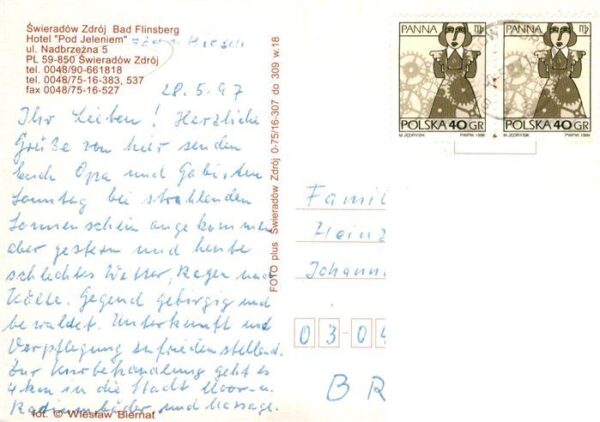 Świeradów Zdrój Bad Flinsberg
Hotel "Pod Jeleniem"
ul. Nadbrzeżna 5
PL 59-850 Świeradów Zdrój
tel. 0048/90-661818
tel. 0048/75-16-383, 537
fax 0048/75-16-527
zum Hirsch
28.5.97
Ihr Lieben! Herzliche
Grüße von hier senden
Euch Opa und Gabi. Am
Sonntag bei strahlendem
Sonnenschein angekommen
aber gestern und heute
schlechtes Wetter, Regen und
Kälte. Gegend gebirgig und
bewaldet. Unterkunft und
Verpflegung zufriedenstellend.
Zur Kurbehandlung geht es
4 km in die Stadt Moor- u.
Radiumbäder und Massage.
fot. © Wiesław Biernat
FOTO plus Świeradów Zdrój 0-75/16-307 do 309 w.18
PANNA ♍
POLSKA 40 GR
M. JĘDRYSIK PWPW 1996
PANNA ♍
POLSKA 40 GR
M. JĘDRYSIK PWPW 1996
Famil
Heinz
Johann
03-04
BR